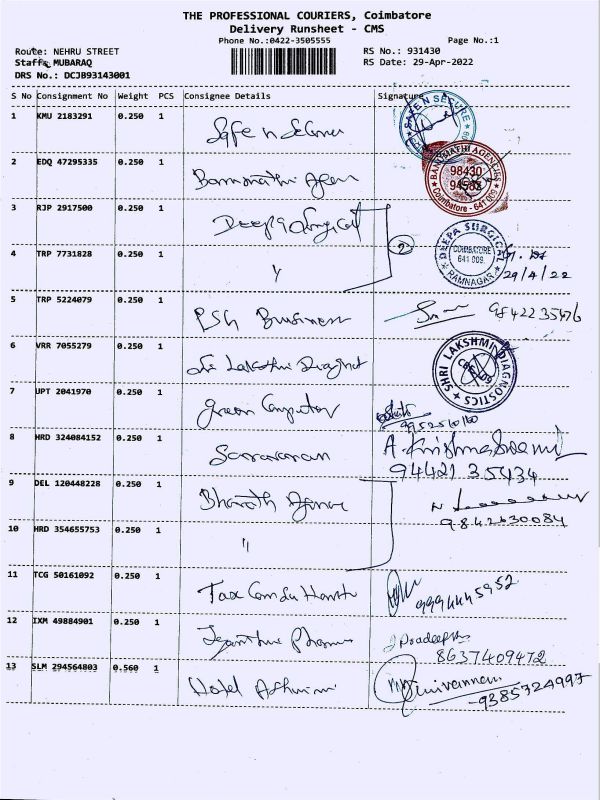 THE PROFESSIONAL COURIERS, Coimbatore
Delivery Runsheet - CMS
Phone No.:0422-3505555 Page No.:1
Route: NEHRU STREET RS No.: 931430
Staff: MUBARAQ RS Date: 29-Apr-2022
DRS No.: DCJB93143001
S No Consignment No Weight PCS Consignee Details Signature
1 KMU 2183291 0.250 1 Safe n Secure SAFE N SECURE
2 EDQ 47295335 0.250 1 BANUMATHI AGENCIES 98430 Coimbatore - 641 009
3 RJP 2917500 0.250 1 Deepa Surgical
4 TRP 7731828 0.250 1 〃 2 DEEPA SURGICAL COIMBATORE 641 009. RAMNAGAR 29/4/22
5 TRP 5224079 0.250 1 PSG Business 98422 35476
6 VRR 7055279 0.250 1 Sri Lakshmi Diagnost SHRI LAKSHMI DIAGNOSTICS CBE-09
7 UPT 2041970 0.250 1 green Computer
8 HRD 324084152 0.250 1 Saravanan A. Krishnaswami
94421 35434
9 DEL 120448228 0.250 1 Bharath Agencies
9842630084
10 HRD 354655753 0.250 1 〃
11 TCG 50161092 0.250 1 Tax 9994445952
12 IXM 49884901 0.250 1 Jeganthu Pharma J Pradeep
8637409472
13 SLM 294564803 0.560 1 Hotel Ashwini
9385724997